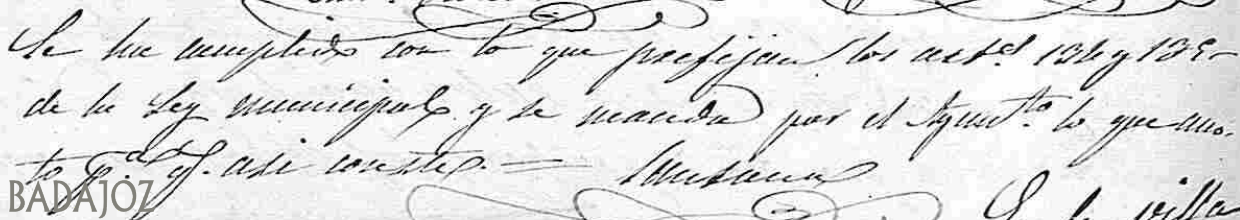 Se ha cumplido con lo que prefijan los artˢ 134 y 135
de la Ley municipal y se manda por el Ayuntᵒ lo que ano-
to pᵃ q. asi conste. =
BADAJOZ
En la villa